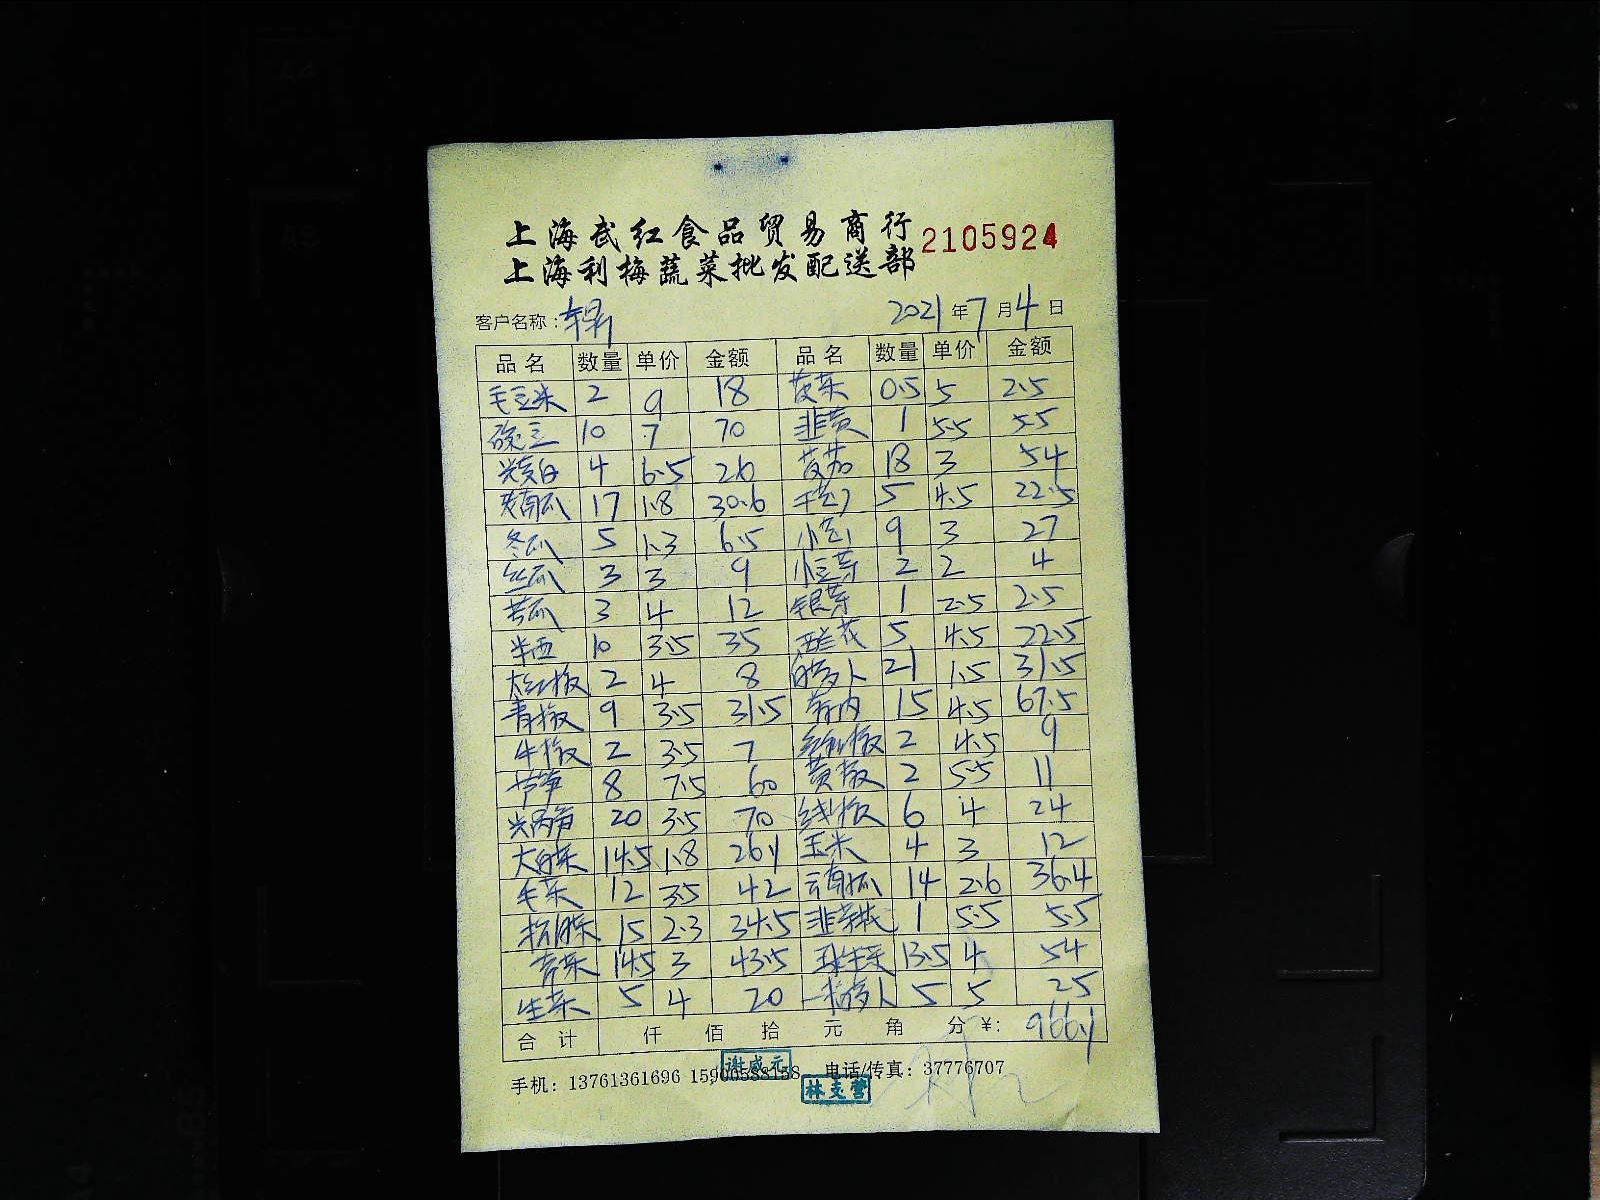 上海武红食品贸易商行
上海利梅蔬菜批发配送部 2105924
客户名称: 2021年7月4日
品名 数量 单价 金额 品名 数量 单价 金额
毛豆米 2 9 18 菠菜 0.5 5 2.5
豆 10 7 70 韭黄 1 5.5 5.5
茭白 4 6.5 26 茄 18 3 54
南瓜 17 1.8 30.6 5 4.5 22.5
冬瓜 5 1.3 6.5 小 9 3 27
丝瓜 3 3 9 小豆芽 2 2 4
苦瓜 3 4 12 银芽 1 2.5 2.5
西 10 3.5 35 西兰花 5 4.5 22.5
大红椒 2 4 8 白萝卜 21 1.5 31.5
青椒 9 3.5 31.5 15 4.5 67.5
牛椒 2 3.5 7 椒 2 4.5 9
芦笋 8 7.5 60 黄椒 2 5.5 11
20 3.5 70 线椒 6 4 24
大白菜 14.5 1.8 26.1 玉米 4 3 12
毛菜 12 3.5 42 云南瓜 14 2.6 36.4
杭白菜 15 2.3 34.5 韭菜 1 5.5 5.5
青菜 14.5 3 43.5 球生菜 13.5 4 54
生菜 5 4 20 萝卜 5 5 25
合计 仟 佰 拾 元 角 分 ¥: 966.1
手机: 13761361696 15900588158 电话/传真: 37776707
谢咸元
林支营